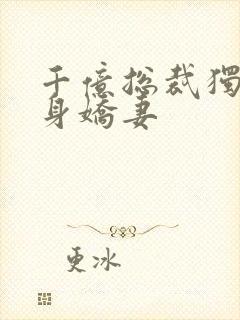 千億総裁獨
身嬌妻
更冰